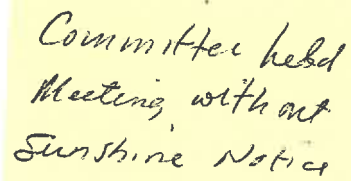 Committee held
Meeting without
Sunshine Notice